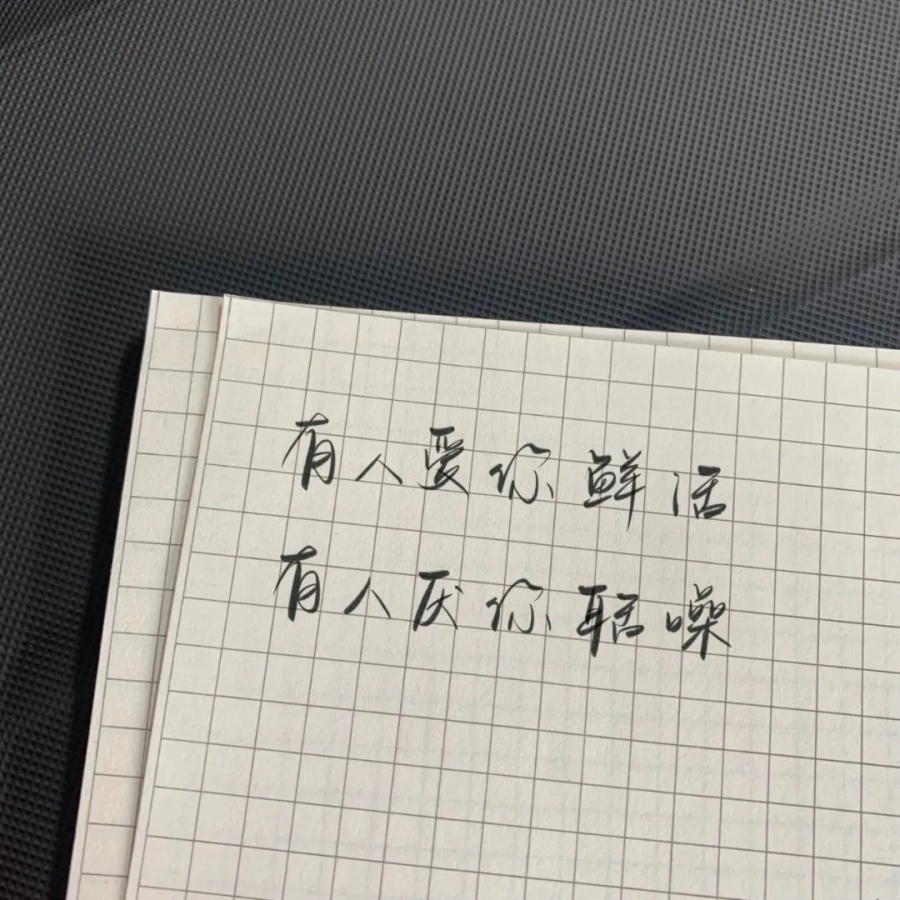 有人爱你鲜活
有人厌你聒噪